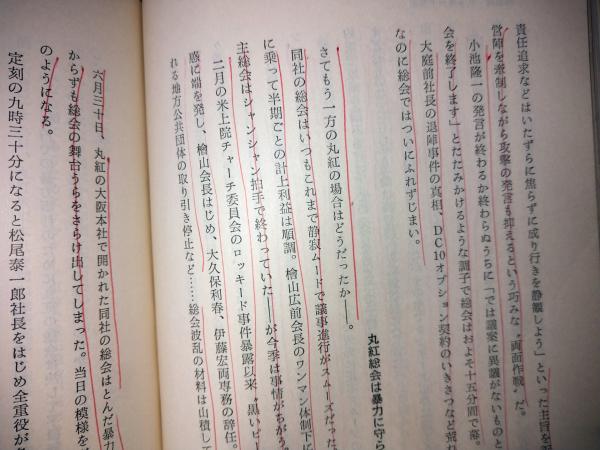 責任追求などはいたずらに焦らずに成り行きを静観しよう」といった主旨を
営陣を牽制しながら攻撃の発言も抑えるという巧みな〝両面作戦〟だ。
小池隆一の発言が終わるか終わらぬうちに「では議案に異議がないものと
会を終了します」とたたみかけるような調子で総会はおよそ十五分間で幕。
大庭前社長の退陣事件の真相、DC10オプション契約のいきさつなど荒れ
なのに総会ではついにふれずじまい。
丸紅総会は暴力に守ら
さてもう一方の丸紅の場合はどうだったか――。
同社の総会はいつもこれまで静寂ムードで議事進行がスムーズだった。
に乗って半期ごとの計上利益は順調。檜山広前会長のワンマン体制下に
主総会はシャンシャン拍手で終わっていた――が今季は事情がちがう。
二月の米上院チャーチ委員会のロッキード事件暴露以来、〝黒いピー
惑に端を発し、檜山会長はじめ、大久保利春、伊藤宏両専務の辞任。
れる地方公共団体の取り引き停止など……総会波乱の材料は山積して
六月三十日、丸紅の大阪本社で開かれた同社の総会はとんだ暴力
からずも総会の舞台うらをさらけ出してしまった。当日の模様を
のようになる。
定刻の九時三十分になると松尾泰一郎社長をはじめ全重役が